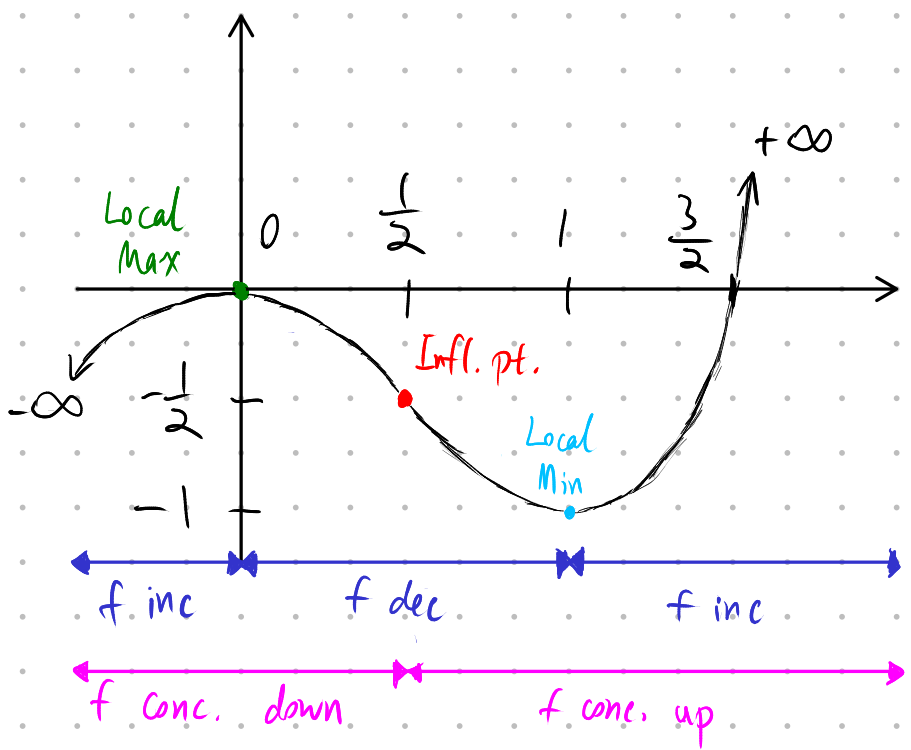 +∞
Local
Max
0
1/2
1
3/2
Infl. pt.
-∞
-1/2
Local
Min
-1
f inc
f dec
f inc
f conc. down
f conc. up